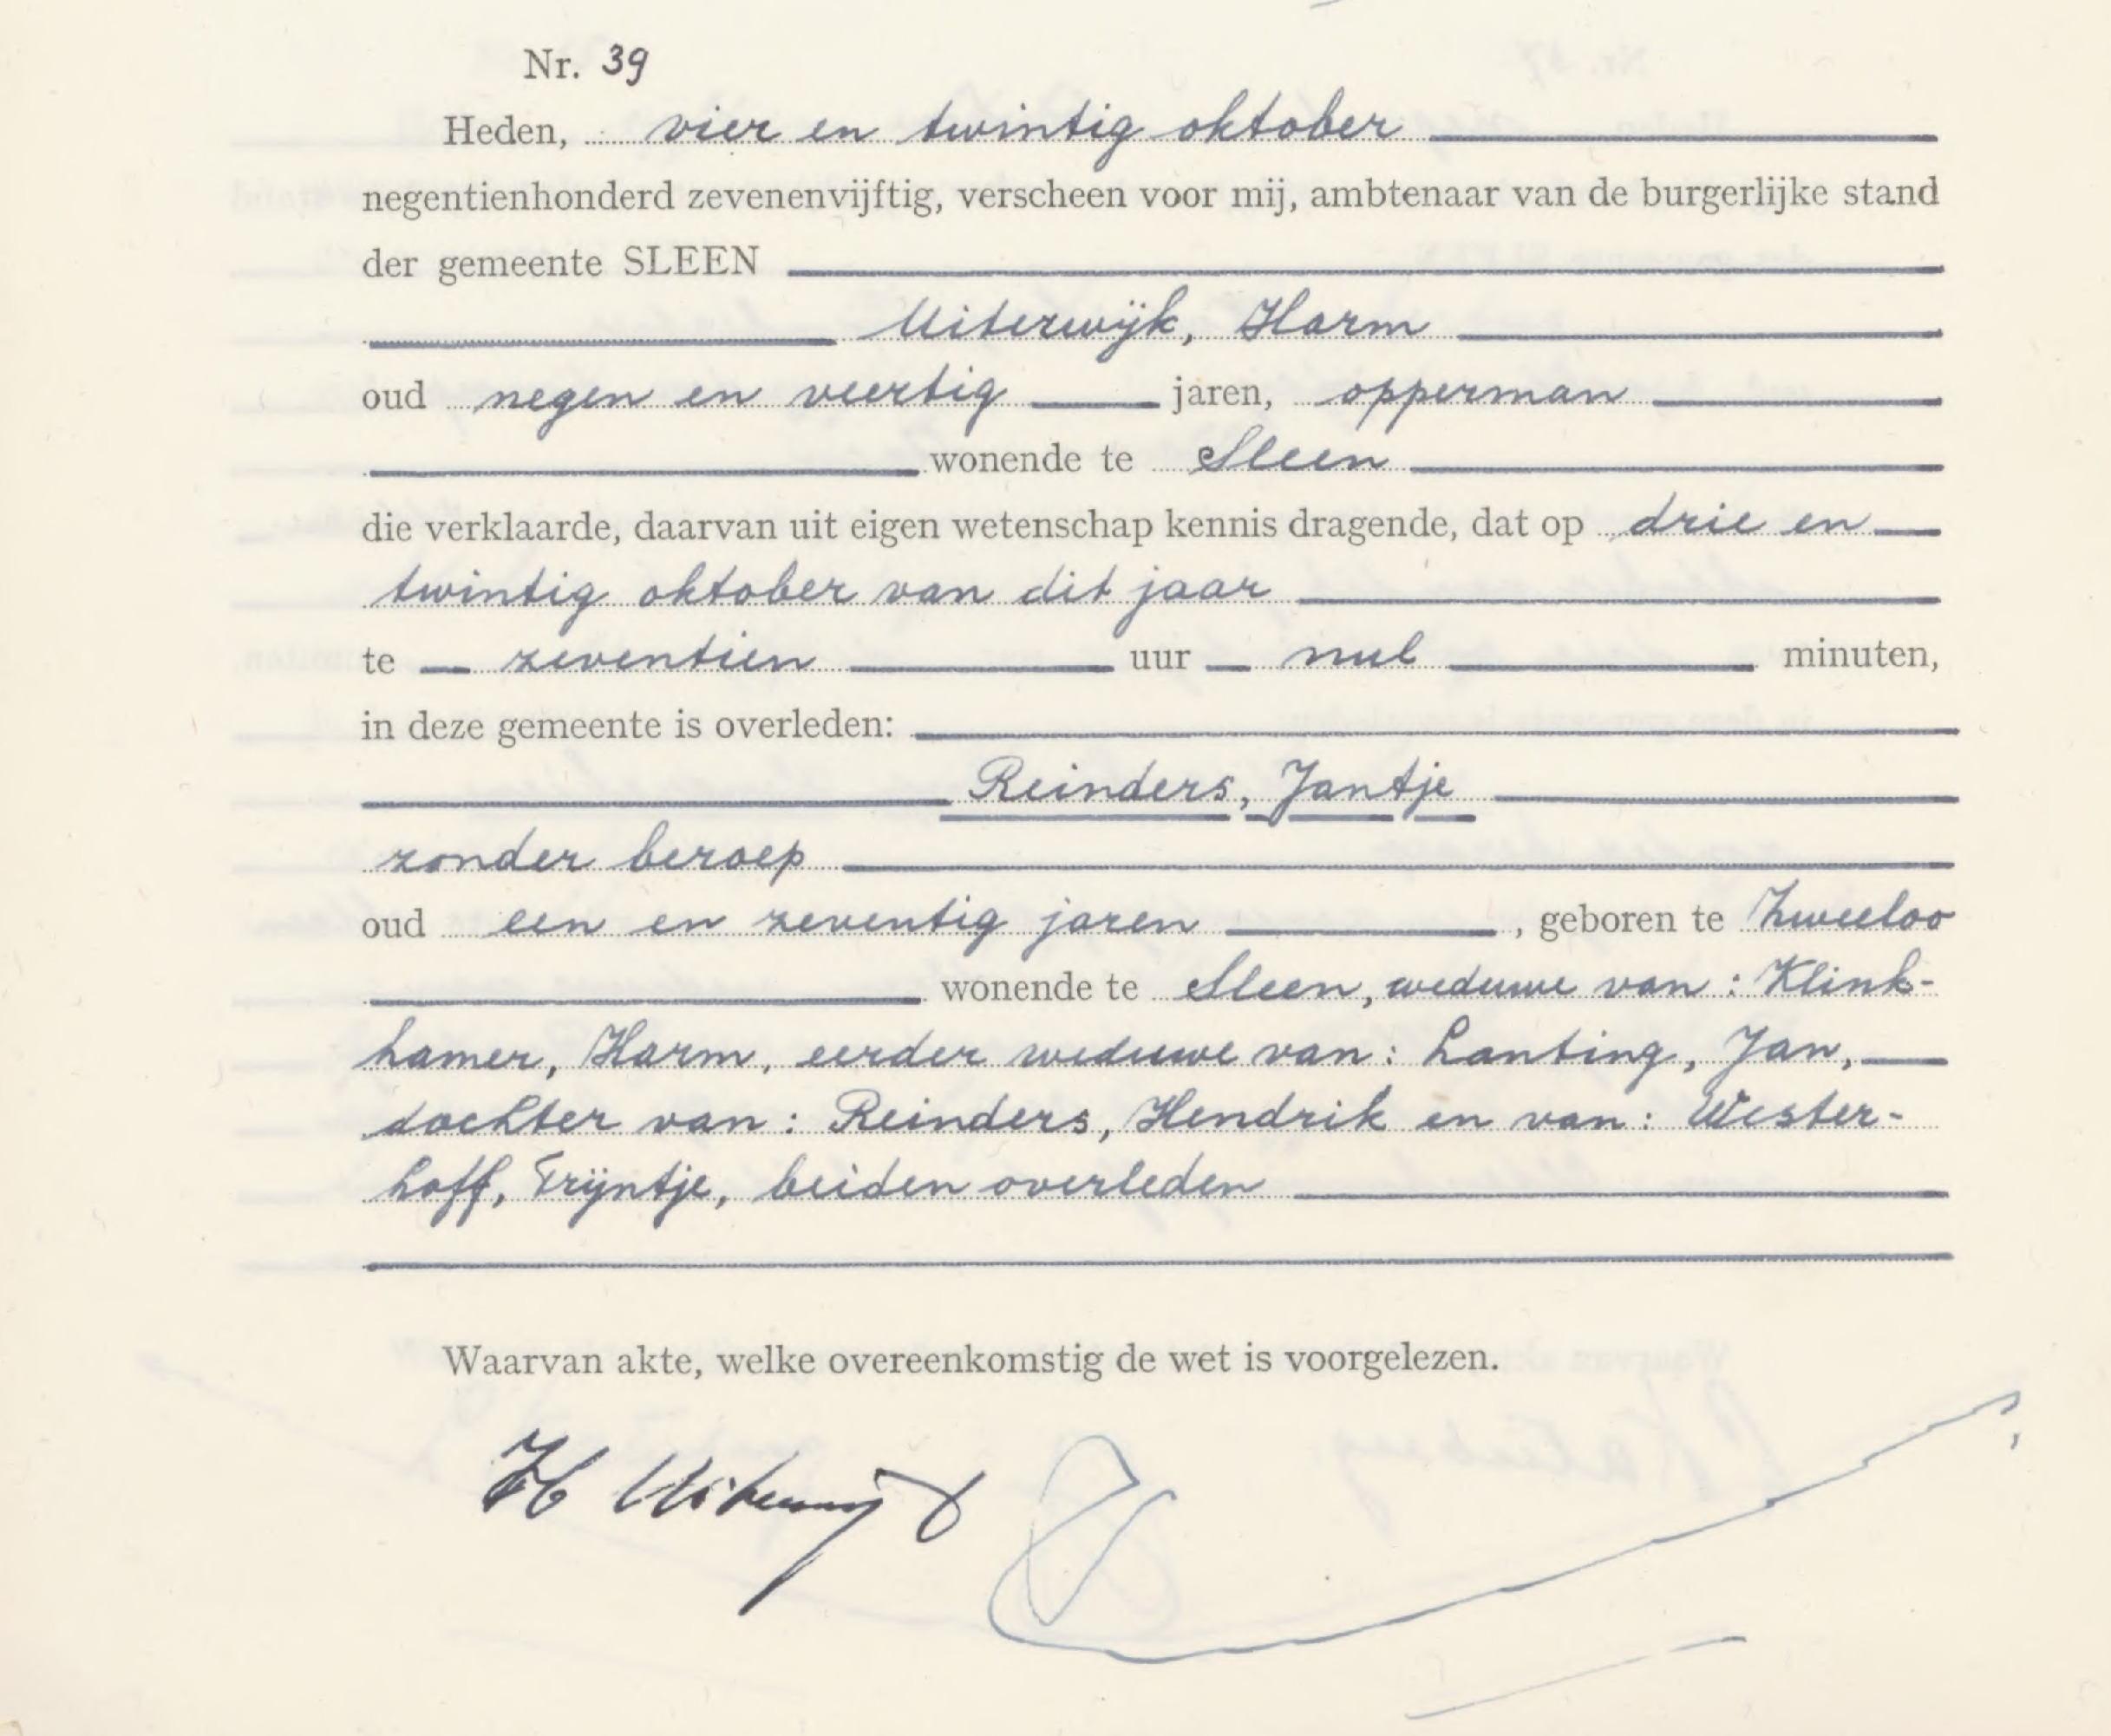 Nr. 39
Heden, vier en twintig oktober
negentienhonderd zevenenvijftig, verscheen voor mij, ambtenaar van de burgerlijke stand
der gemeente SLEEN
Uiterwijk, Harm
oud negen en veertig jaren, opperman
wonende te Sleen
die verklaarde, daarvan uit eigen wetenschap kennis dragende, dat op drie en
twintig oktober van dit jaar
te zeventien uur nul minuten,
in deze gemeente is overleden:
Reinders, Jantje
zonder beroep
oud een en zeventig jaren, geboren te Zweeloo
wonende te Sleen, weduwe van: Klink-
hamer, Harm, eerder weduwe van: Lanting, Jan,
dochter van: Reinders, Hendrik en van: Wester-
hoff, Trijntje, beiden overleden
Waarvan akte, welke overeenkomstig de wet is voorgelezen.
H Uiterwijk